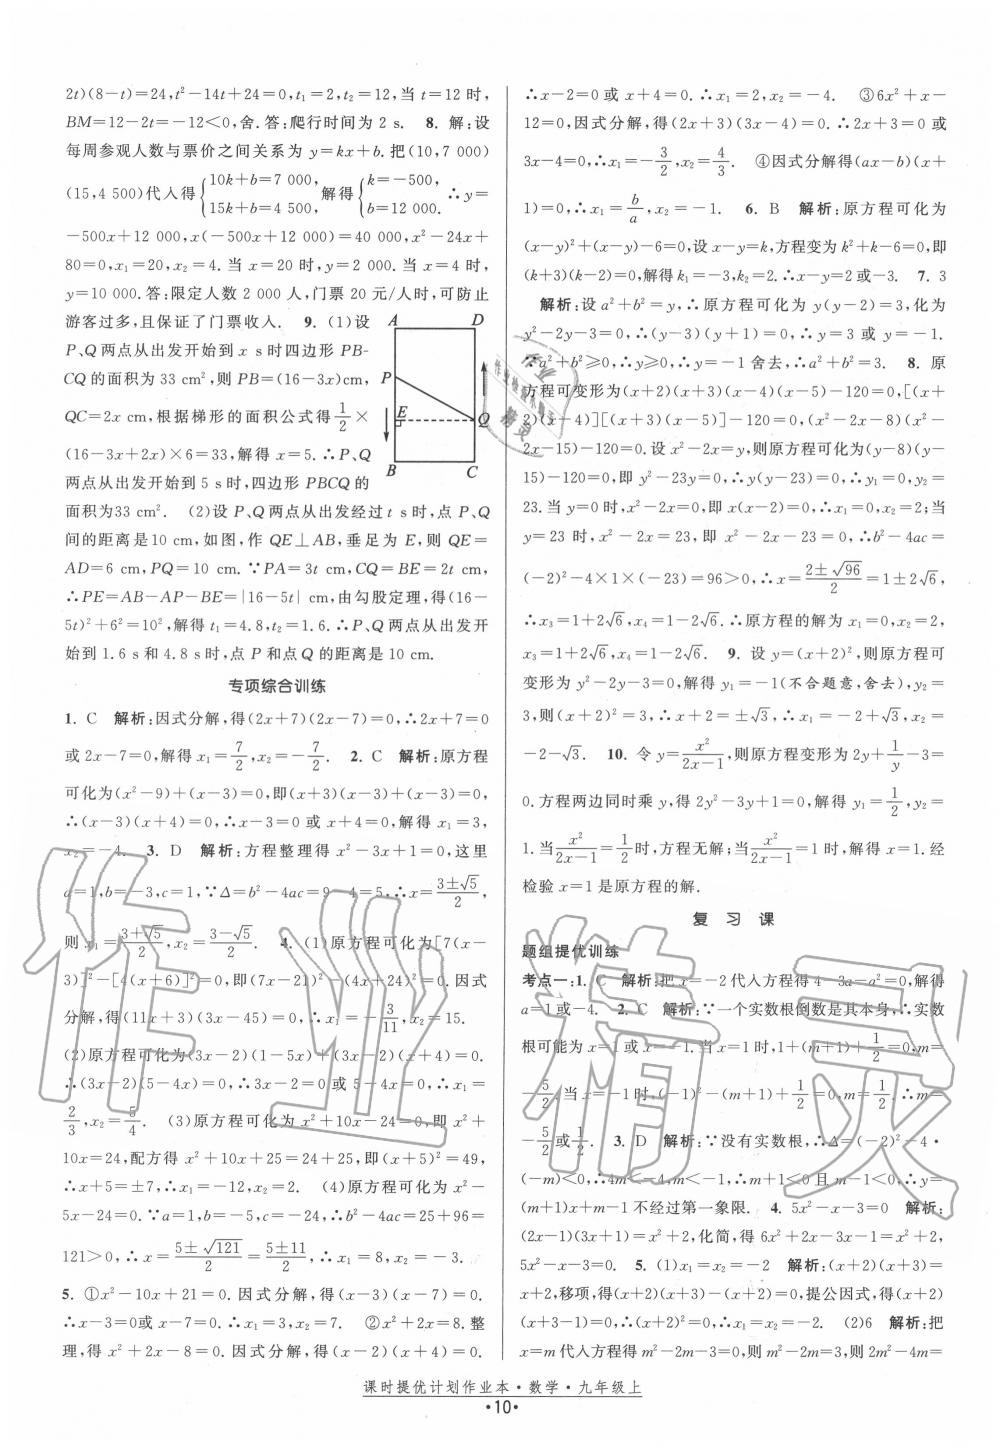 2t)(8-t)=24,t²-14t+24=0,t₁=2,t₂=12,当 t=12 时,
BM=12-2t=-12<0,舍.答:爬行时间为 2 s. 8. 解:设
每周参观人数与票价之间关系为 y=kx+b.把(10,7 000)
(15,4 500)代入得{10k+b=7 000, 15k+b=4 500,解得{k=-500, b=12 000. ∴y=
-500x+12 000,x(-500x+12 000)=40 000,x²-24x+
80=0,x₁=20,x₂=4.当 x=20 时,y=2 000,当 x=4 时,
y=10 000.答:限定人数 2 000 人,门票 20 元/人时,可防止
游客过多,且保证了门票收入. 9. (1)设
P、Q 两点从出发开始到 x s 时四边形 PB-
CQ 的面积为 33 cm²,则 PB=(16-3x)cm,
QC=2x cm,根据梯形的面积公式得 1/2 ×
(16-3x+2x)×6=33,解得 x=5.∴P、Q
两点从出发开始到 5 s 时,四边形 PBCQ 的
A D
P
E Q
B C
面积为33 cm². (2)设 P、Q 两点从出发经过 t s 时,点 P、Q
间的距离是10 cm,如图,作 QE⊥AB,垂足为 E,则 QE=
AD=6 cm,PQ=10 cm.∵PA=3t cm,CQ=BE=2t cm,
∴PE=AB-AP-BE=|16-5t| cm,由勾股定理,得(16-
5t)²+6²=10²,解得 t₁=4.8,t₂=1.6.∴P、Q 两点从出发开
始到 1.6 s 和 4.8 s 时,点 P 和点 Q 的距离是 10 cm.
专项综合训练
1. C 解析:因式分解,得(2x+7)(2x-7)=0,∴2x+7=0
或 2x-7=0,解得 x₁=7/2,x₂=-7/2. 2. C 解析:原方程
可化为(x²-9)+(x-3)=0,即(x+3)(x-3)+(x-3)=0,
∴(x-3)(x+4)=0,∴x-3=0 或 x+4=0,解得 x₁=3,
x₂=-4. 3. D 解析:方程整理得 x²-3x+1=0,这里
a=1,b=-3,c=1,∵Δ=b²-4ac=9-4=5,∴x=(3±√5)/2,
则 x₁=(3+√5)/2,x₂=(3-√5)/2. 4. (1)原方程可化为[7(x-
3)]²-[4(x+6)]²=0,即(7x-21)²-(4x+24)²=0.因式
分解,得(11x+3)(3x-45)=0,∴x₁=-3/11,x₂=15.
(2)原方程可化为(3x-2)(1-5x)+(3x-2)(x+4)=0.
∴(3x-2)(5-4x)=0,∴3x-2=0 或 5-4x=0,∴x₁=
2/3,x₂=5/4. (3)原方程可化为 x²+10x-24=0,即 x²+
10x=24,配方得 x²+10x+25=24+25,即(x+5)²=49,
∴x+5=±7,∴x₁=-12,x₂=2. (4)原方程可化为 x²-
5x-24=0.∵a=1,b=-5,c=-24,∴b²-4ac=25+96=
121>0,∴x=(5±√121)/2=(5±11)/2,∴x₁=8,x₂=-3.
5. ①x²-10x+21=0.因式分解,得(x-3)(x-7)=0.
∴x-3=0或x-7=0.∴x₁=3,x₂=7. ②x²+2x=8.整
理,得 x²+2x-8=0.因式分解,得(x-2)(x+4)=0.
∴x-2=0 或 x+4=0.∴x₁=2,x₂=-4. ③6x²+x-
12=0,因式分解,得(2x+3)(3x-4)=0.∴2x+3=0 或
3x-4=0,∴x₁=-3/2,x₂=4/3. ④因式分解得(ax-b)(x+
1)=0,∴x₁=b/a,x₂=-1. 6. B 解析:原方程可化为
(x-y)²+(x-y)-6=0,设 x-y=k,方程变为 k²+k-6=0,即
(k+3)(k-2)=0,解得 k₁=-3,k₂=2.∴x-y=2或-3. 7. 3
解析:设 a²+b²=y,∴原方程可化为 y(y-2)=3,化为
y²-2y-3=0,∴(y-3)(y+1)=0,∴y=3 或 y=-1.
∵a²+b²≥0,∴y≥0,∴y=-1 舍去,∴a²+b²=3. 8. 原
方程可变形为(x+2)(x+3)(x-4)(x-5)-120=0,[(x+
2)(x-4)][(x+3)(x-5)]-120=0,(x²-2x-8)(x²-
2x-15)-120=0.设 x²-2x=y,则原方程可化为(y-8)(y-
15)-120=0,即 y²-23y=0,∴y(y-23)=0,∴y₁=0,y₂=
23.当 y=0 时,x²-2x=0,即 x(x-2)=0,∴x₁=0,x₂=2;当
y=23 时,x²-2x=23,即 x²-2x-23=0,∴b²-4ac=
(-2)²-4×1×(-23)=96>0,∴x=(2±√96)/2=1±2√6,
∴x₃=1+2√6,x₄=1-2√6.∴原方程的解为 x₁=0,x₂=2,
x₃=1+2√6,x₄=1-2√6. 9. 设 y=(x+2)²,则原方程可
变形为 y²-2y-3=0,解得 y₁=-1(不合题意,舍去),y₂=
3,则(x+2)²=3,∴x+2=±√3,∴x₁=-2+√3,x₂=
-2-√3. 10. 令 y=x²/(2x-1),则原方程变形为 2y+1/y-3=
0.方程两边同时乘 y,得 2y²-3y+1=0,解得 y₁=1/2,y₂=
1.当x²/(2x-1)=1/2时,方程无解;当x²/(2x-1)=1 时,解得 x=1.经
检验 x=1 是原方程的解.
复 习 课
题组提优训练
考点一:1. C 解析:把 x=-2代入方程得 4-3a-a²=0,解得
a=1或-4. 2. C 解析:∵一个实数根倒数是其本身,∴实数
根可能为 x=1或 x=-1.当 x=1 时,1+(m+1)+1/2=0,m=
-5/2.当 x=-1时,(-1)²-(m+1)+1/2=0,m=1/2.∴m=
-5/2或1/2. 3. D 解析:∵没有实数根,∴Δ=(-2)²-4·
(-m)<0,∴4m<-4,∴m<-1,∴m+1<0 且 m-1<0,∴y=
(m+1)x+m-1 不经过第一象限. 4. 5x²-x-3=0 解析:
(2x-1)(3x+1)=x²+2,化简,得 6x²+2x-3x-1=x²+2,
5x²-x-3=0. 5. (1)x₁=x₂=-2 解析:(x+2)(x+3)=
x+2,移项,得(x+2)(x+3)-(x+2)=0,提公因式,得(x+2)
(x+3-1)=0,∴(x+2)²=0,∴x₁=x₂=-2. (2)6 解析:把
x=m 代入方程得 m²-2m-3=0,则 m²-2m=3,∴2m²-4m=
课时提优计划作业本·数学·九年级上
·10·
作业精灵